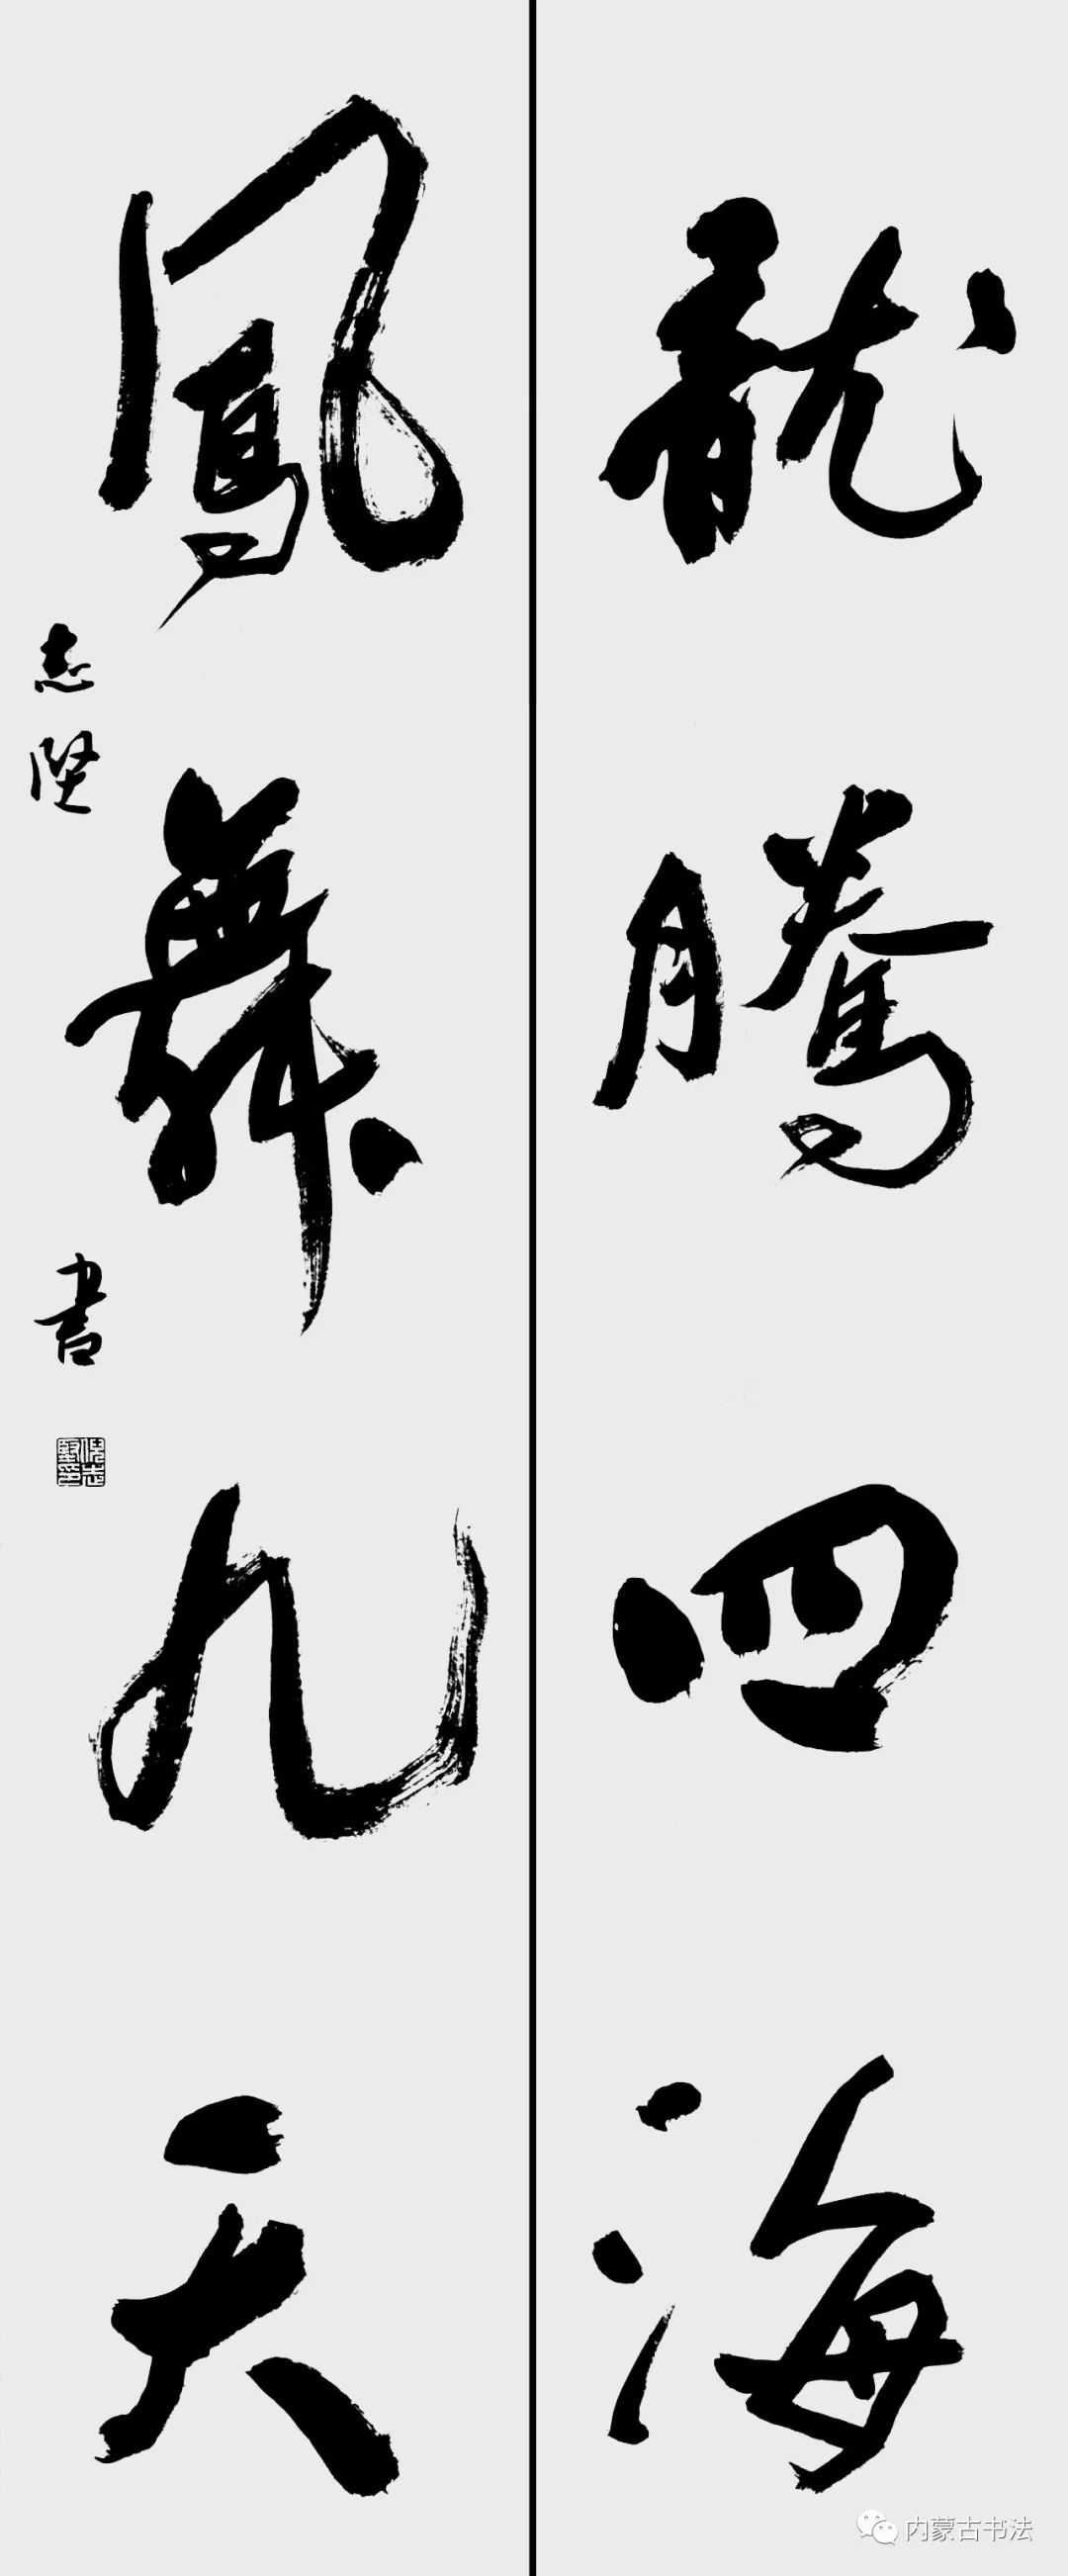 龍騰四海
鳳舞九天
志堅書
倪志堅印
内蒙古书法